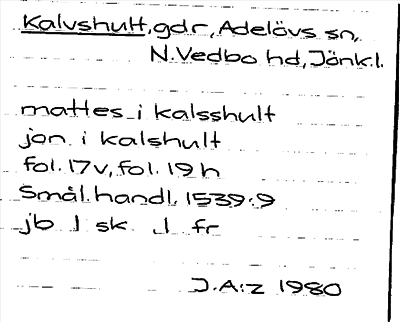 Kalvshult, gdr, Adelövs sn,
N.Vedbo hd, Jönk.l.
mattes i kalsshult
jon i kalshult
fol. 17v, fol. 19 h
Smål. handl. 1539:9
jb 1 sk 1 fr
J.A:z 1980